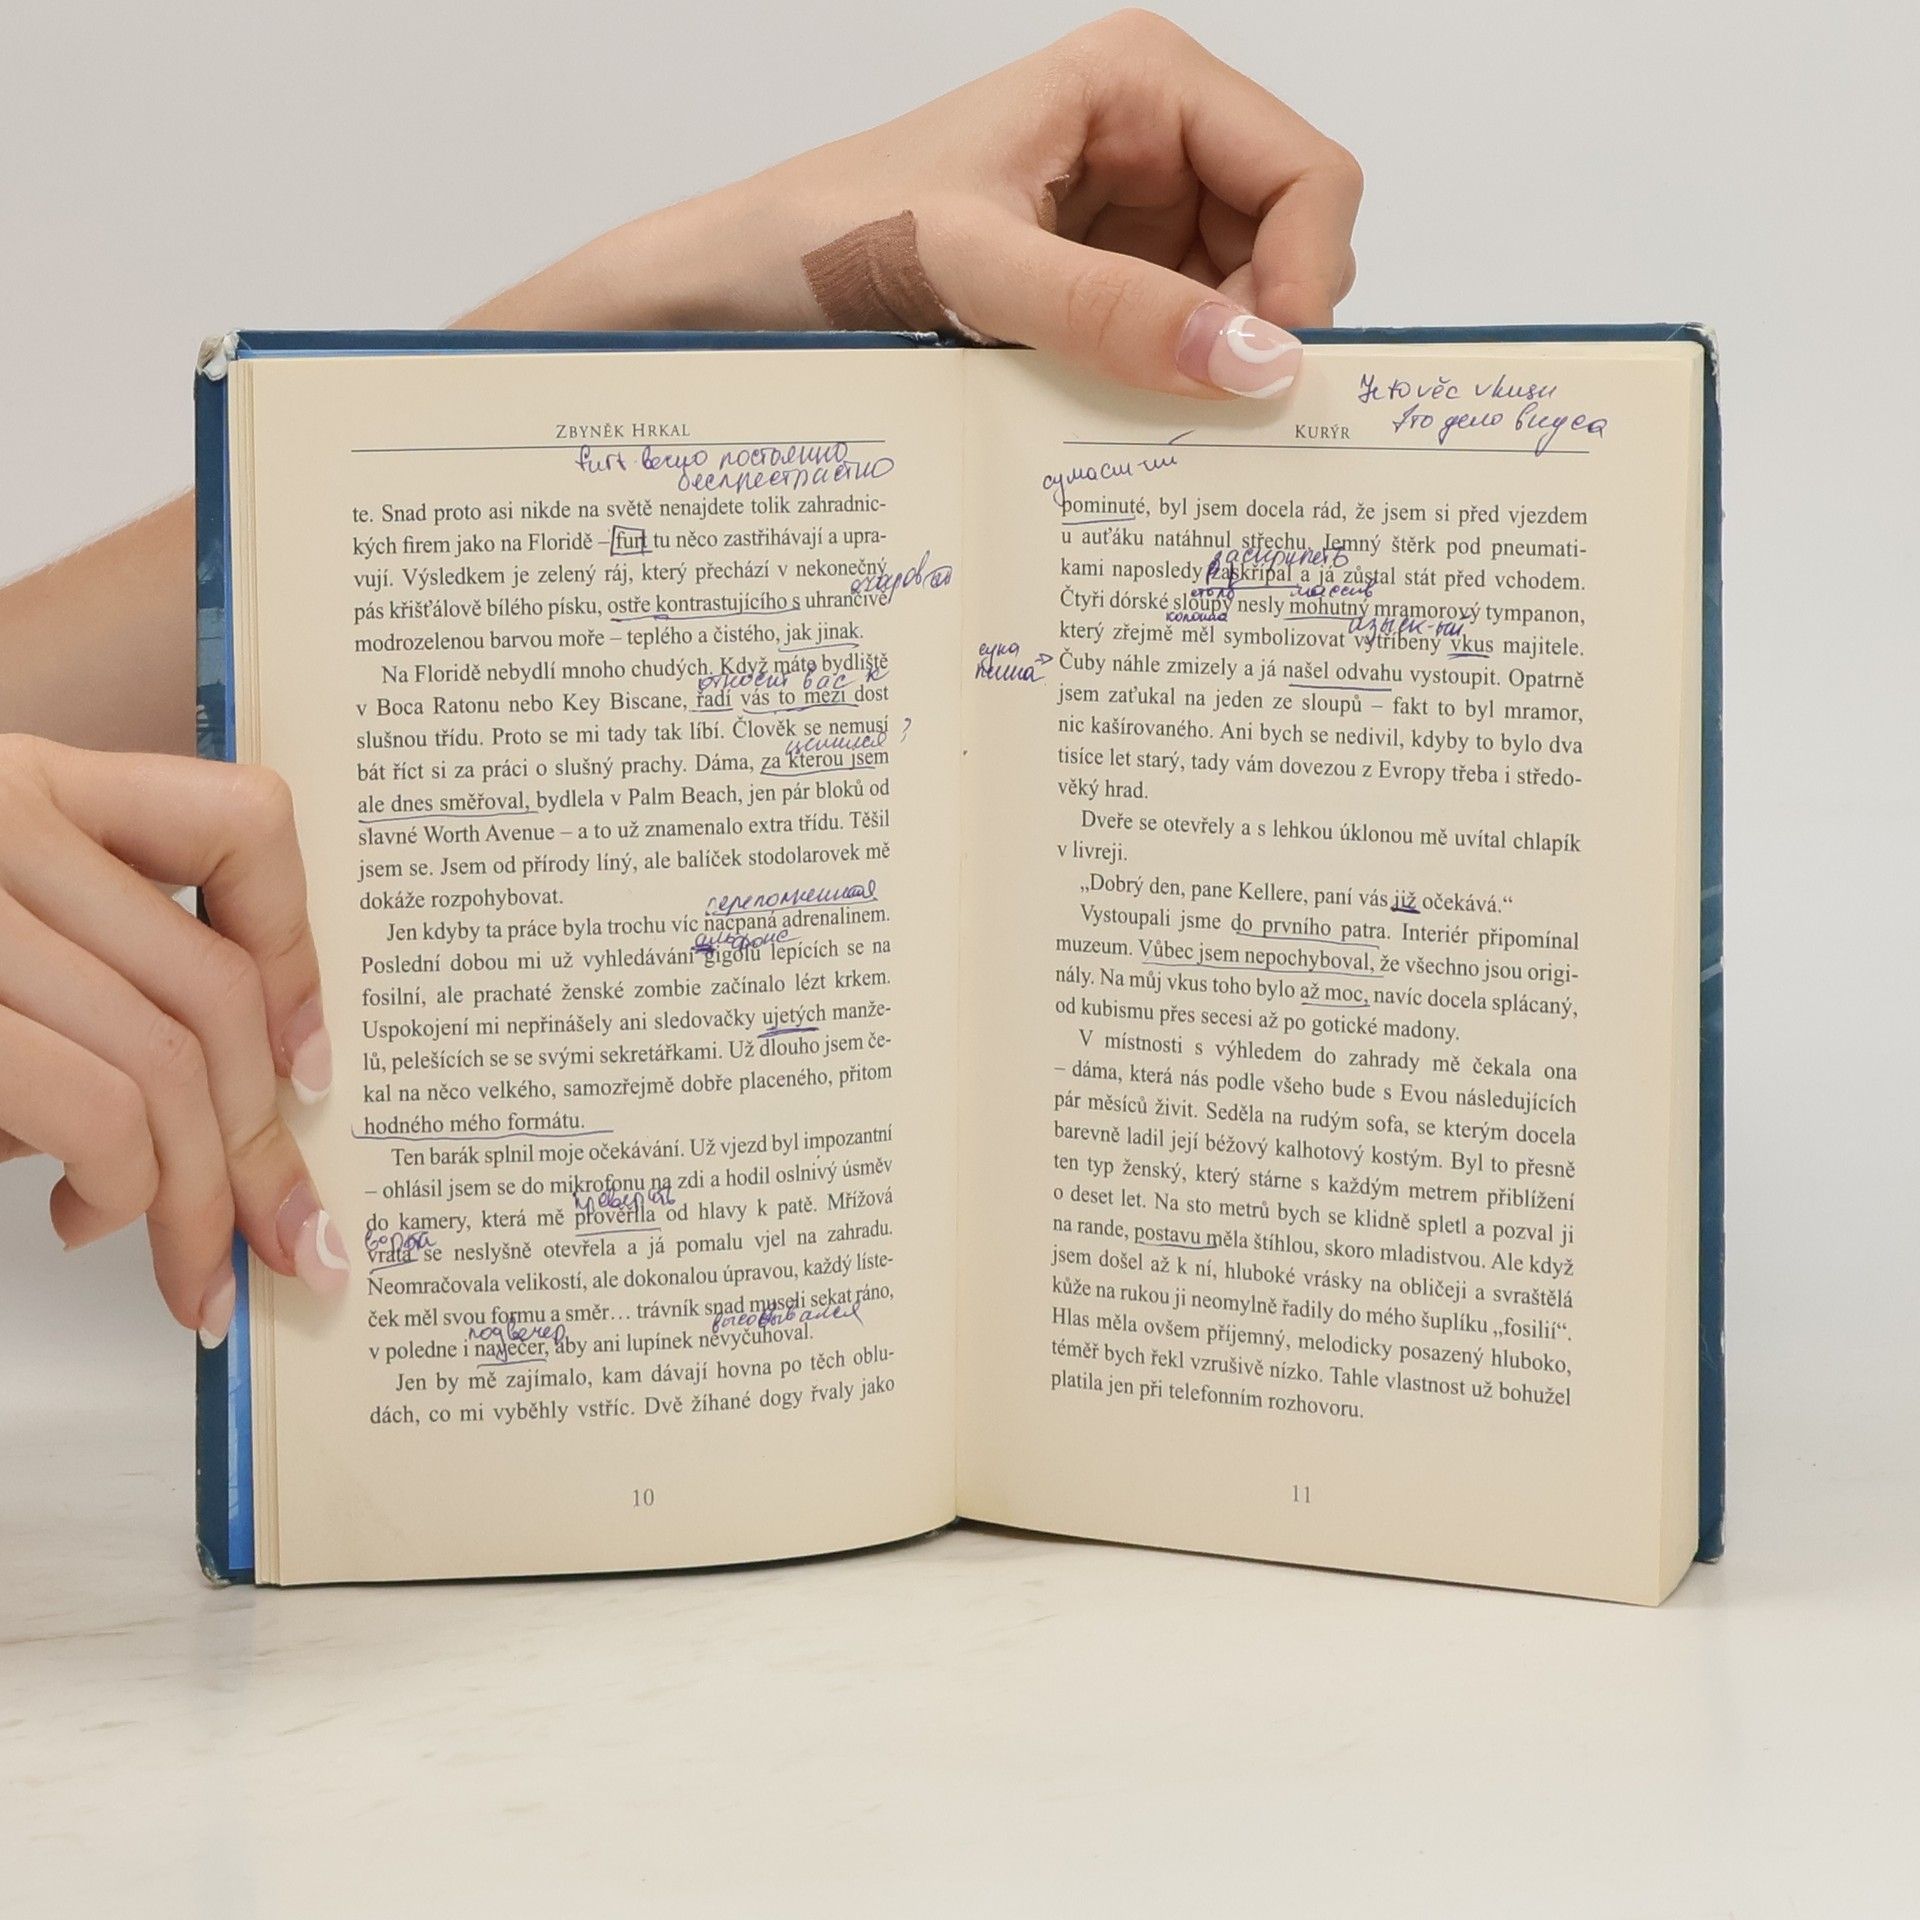 ZBYNĚK HRKAL
furt вечно постоянно
беспрестанно
te. Snad proto asi nikde na světě nenajdete tolik zahradnic-
kých firem jako na Floridě – furt tu něco zastřihávají a upra-
vují. Výsledkem je zelený ráj, který přechází v nekonečný
pás křišťálově bílého písku, ostře kontrastujícího s uhrančivě
modrozelenou barvou moře – teplého a čistého, jak jinak.
Na Floridě nebydlí mnoho chudých. Když máte bydliště
относит вас к
v Boca Ratonu nebo Key Biscane, řadí vás to mezi dost
slušnou třídu. Proto se mi tady tak líbí. Člověk se nemusí
bát říct si za práci o slušný prachy. Dáma, za kterou jsem
ale dnes směřoval, bydlela v Palm Beach, jen pár bloků od
slavné Worth Avenue – a to už znamenalo extra třídu. Těšil
jsem se. Jsem od přírody líný, ale balíček stodolarovek mě
dokáže rozpohybovat.
переполненная
Jen kdyby ta práce byla trochu víc nacpaná adrenalinem.
альфонс
Poslední dobou mi už vyhledávání gigolů lepících se na
fosilní, ale prachaté ženské zombie začínalo lézt krkem.
Uspokojení mi nepřinášely ani sledovačky ujetých manže-
lů, pelešících se se svými sekretářkami. Už dlouho jsem če-
kal na něco velkého, samozřejmě dobře placeného, přitom
hodného mého formátu.
Ten barák splnil moje očekávání. Už vjezd byl impozantní
– ohlásil jsem se do mikrofonu na zdi a hodil oslnivý úsměv
проверить
do kamery, která mě prověřila od hlavy k patě. Mřížová
ворота
vrata se neslyšně otevřela a já pomalu vjel na zahradu.
Neomračovala velikostí, ale dokonalou úpravou, každý líste-
ček měl svou formu a směr… trávník snad museli sekat ráno,
под вечер высовывался
v poledne i navečer, aby ani lupínek nevyčuhoval.
Jen by mě zajímalo, kam dávají hovna po těch oblu-
dách, co mi vyběhly vstříc. Dvě žíhané dogy řvaly jako
10
Je to věc vkusu
это дело вкуса
KURÝR
сумасш-ши
pominuté, byl jsem docela rád, že jsem si před vjezdem
u auťáku natáhnul střechu. Jemný štěrk pod pneumati-
заскрипеть
kami naposledy zaskřípal a já zůstal stát před vchodem.
столб массив
Čtyři dórské sloupy nesly mohutný mramorový tympanon,
колонна
který zřejmě měl symbolizovat vytříbený vkus majitele.
сука
Čuby náhle zmizely a já našel odvahu vystoupit. Opatrně
jsem zaťukal na jeden ze sloupů – fakt to byl mramor,
nic kašírovaného. Ani bych se nedivil, kdyby to bylo dva
tisíce let starý, tady vám dovezou z Evropy třeba i středo-
věký hrad.
Dveře se otevřely a s lehkou úklonou mě uvítal chlapík
v livreji.
„Dobrý den, pane Kellere, paní vás již očekává.“
Vystoupali jsme do prvního patra. Interiér připomínal
muzeum. Vůbec jsem nepochyboval, že všechno jsou origi-
nály. Na můj vkus toho bylo až moc, navíc docela splácaný,
od kubismu přes secesi až po gotické madony.
V místnosti s výhledem do zahrady mě čekala ona
– dáma, která nás podle všeho bude s Evou následujících
pár měsíců živit. Seděla na rudým sofa, se kterým docela
barevně ladil její béžový kalhotový kostým. Byl to přesně
ten typ ženský, který stárne s každým metrem přiblížení
o deset let. Na sto metrů bych se klidně spletl a pozval ji
na rande, postavu měla štíhlou, skoro mladistvou. Ale když
jsem došel až k ní, hluboké vrásky na obličeji a svraštělá
kůže na rukou ji neomylně řadily do mého šuplíku „fosilií“.
Hlas měla ovšem příjemný, melodicky posazený hluboko,
téměř bych řekl vzrušivě nízko. Tahle vlastnost už bohužel
platila jen při telefonním rozhovoru.
11